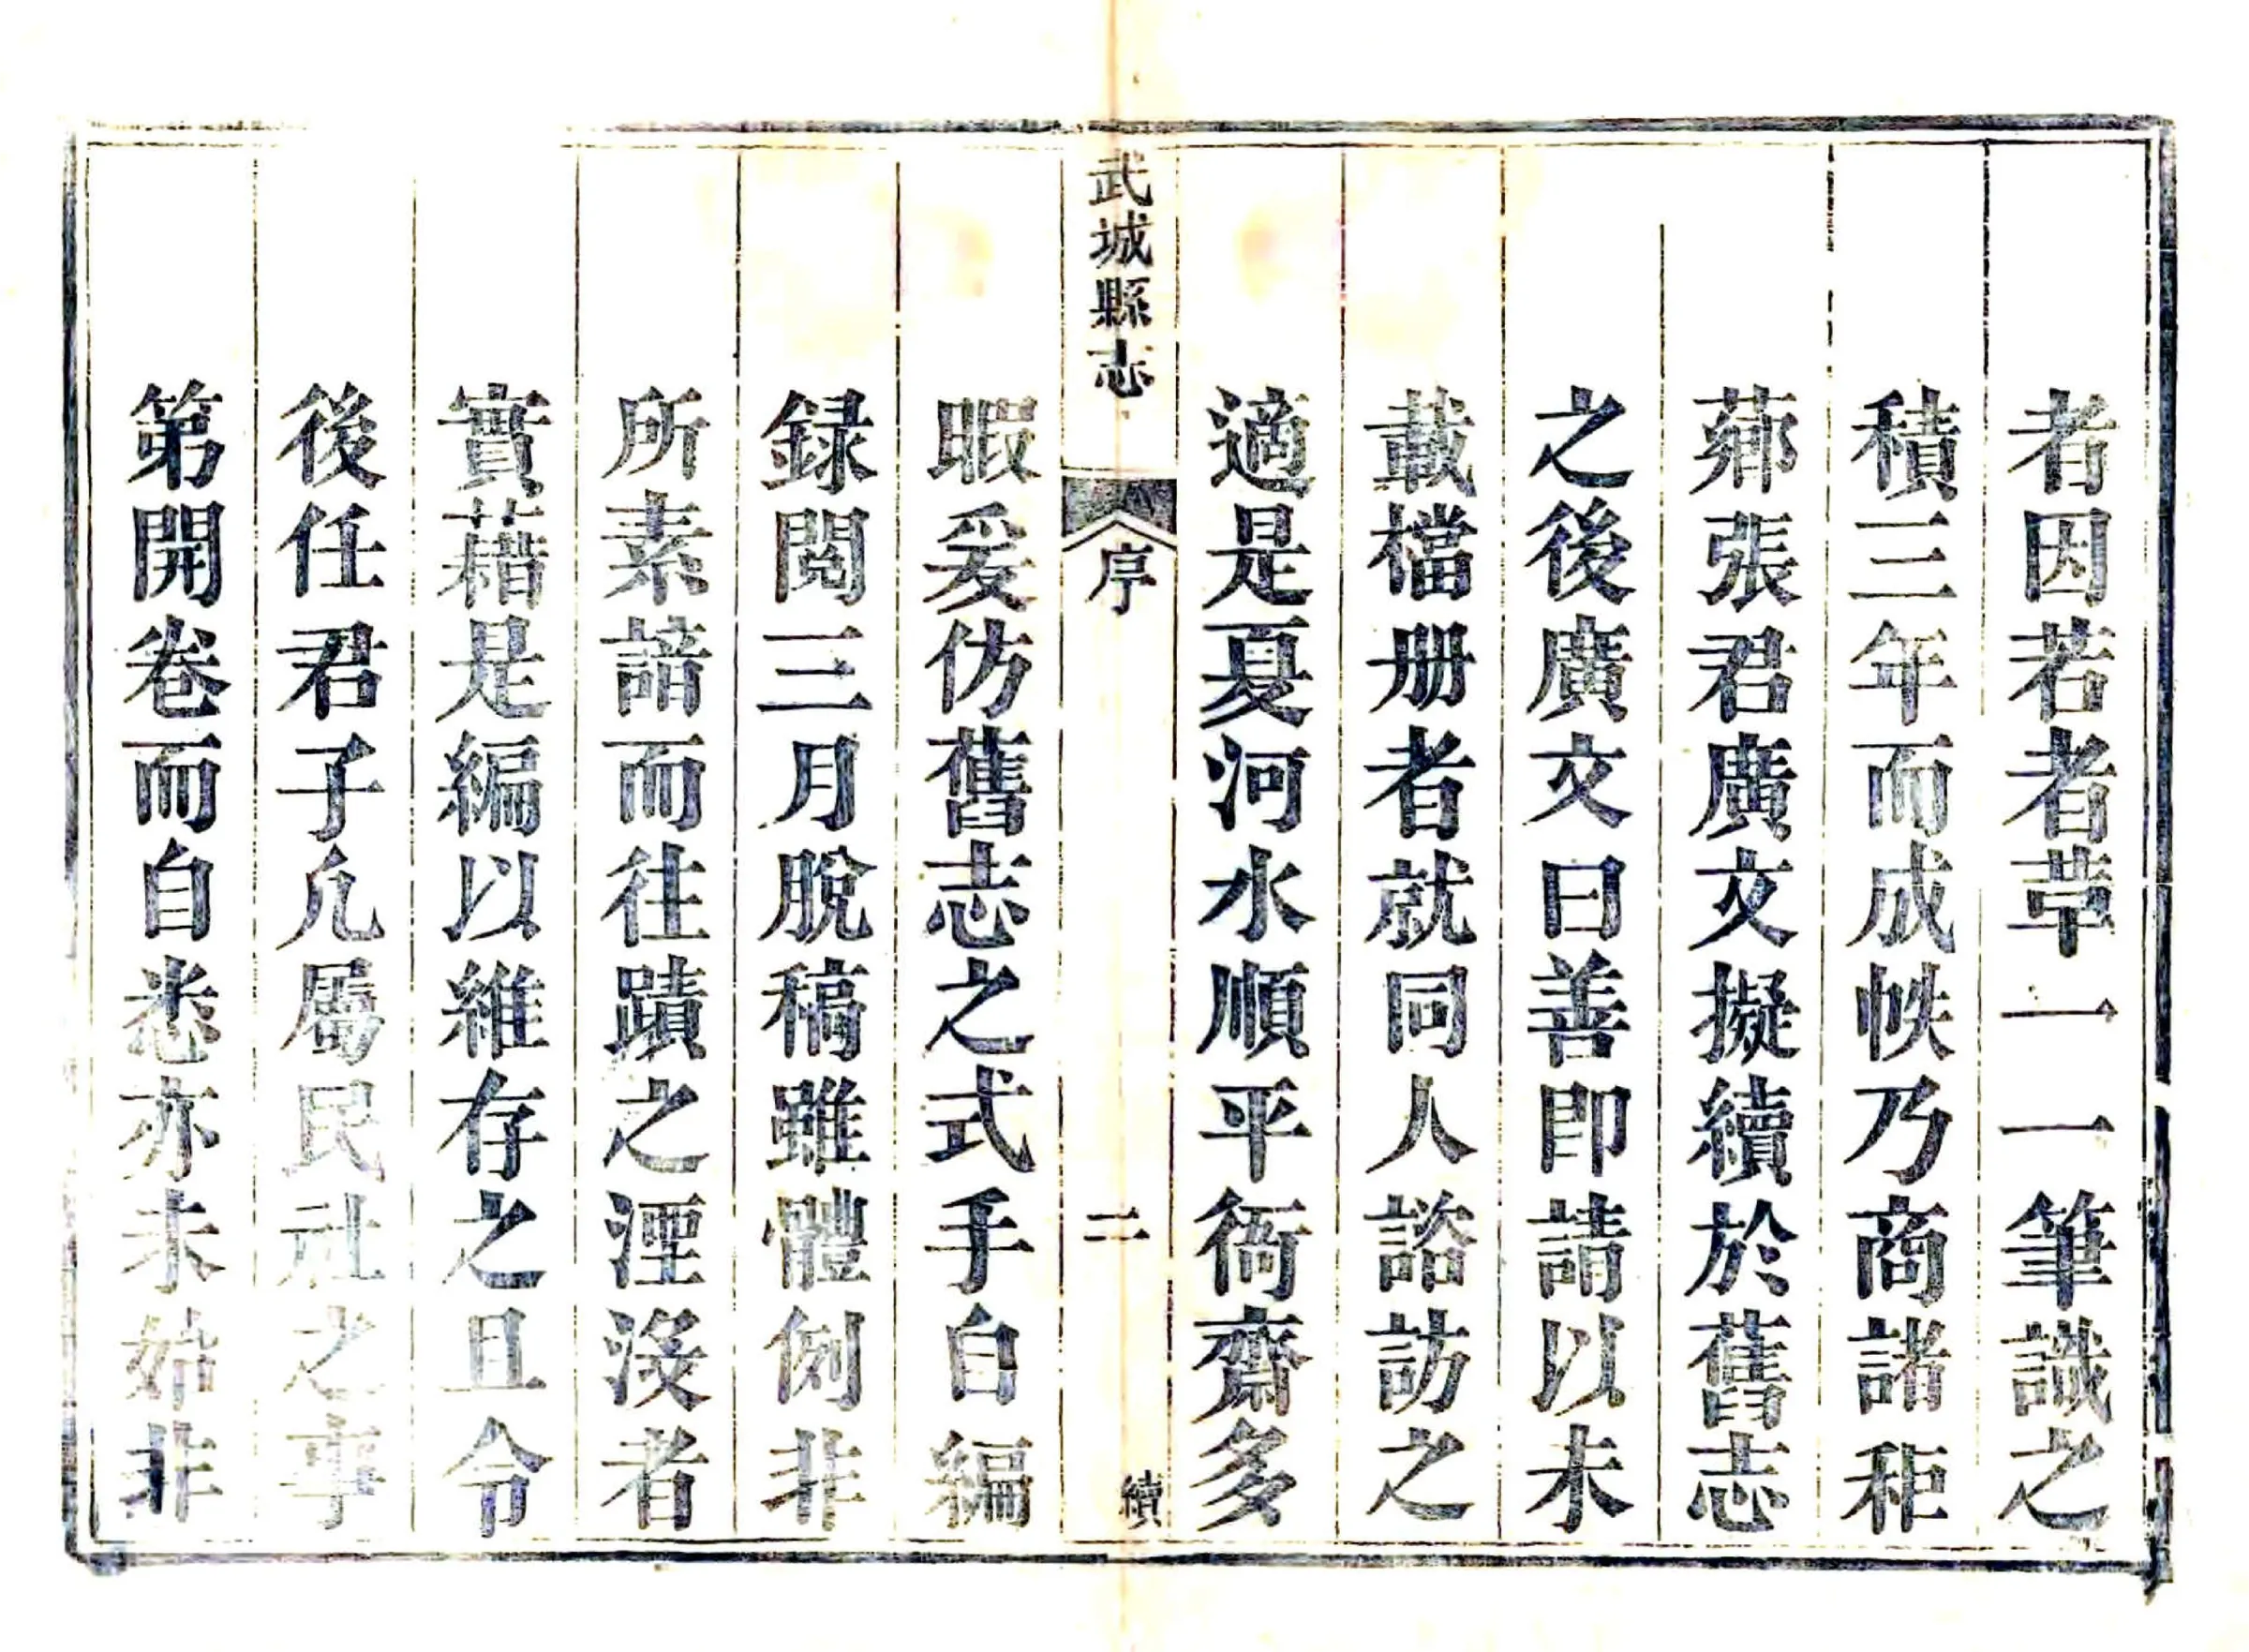 者因若者草一一筆識之
積三年而成帙乃商諸秬
薌張君廣文擬續於舊志
之後廣文曰善即請以未
載檔册者就同人諮訪之
適是夏河水順平衙齋多
武城縣志
序
二
續
暇爰仿舊志之式手自編
録閱三月脫稿雖體例非
所素諳而往蹟之湮没者
實藉是編以維存之且令
後任君子凢屬民社之事
第開卷而自悉亦未始非